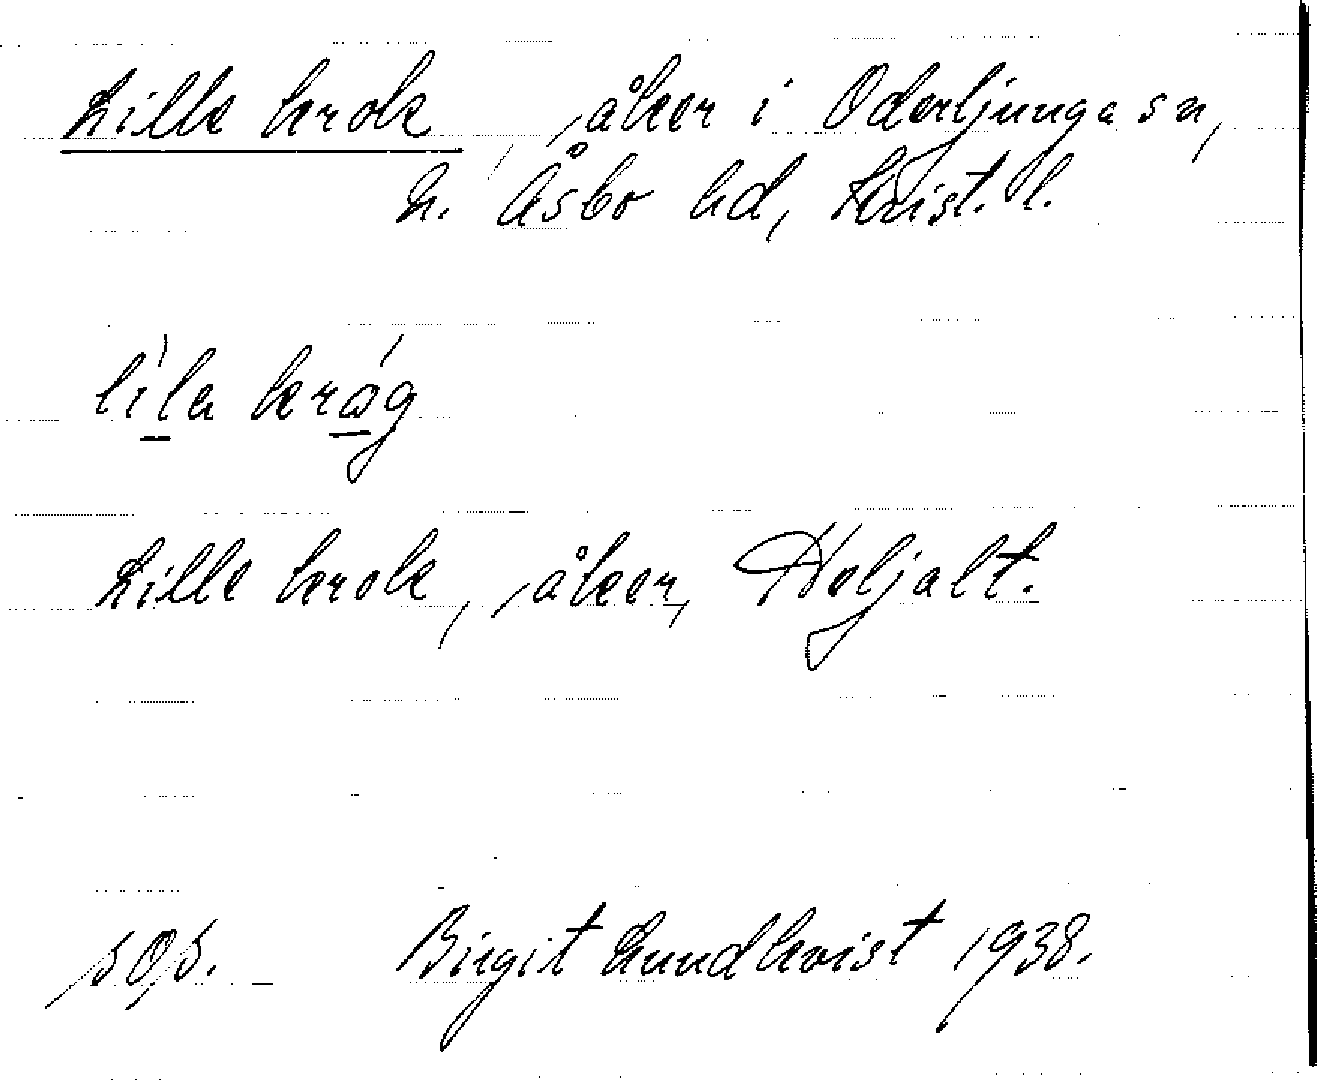 Lille krok, åker i Oderljunga sn,
N. Åsbo hd, Krist. l.
lila kråg
Lille krok, åker, Heljalt.
Birgit Lundkvist 1938.